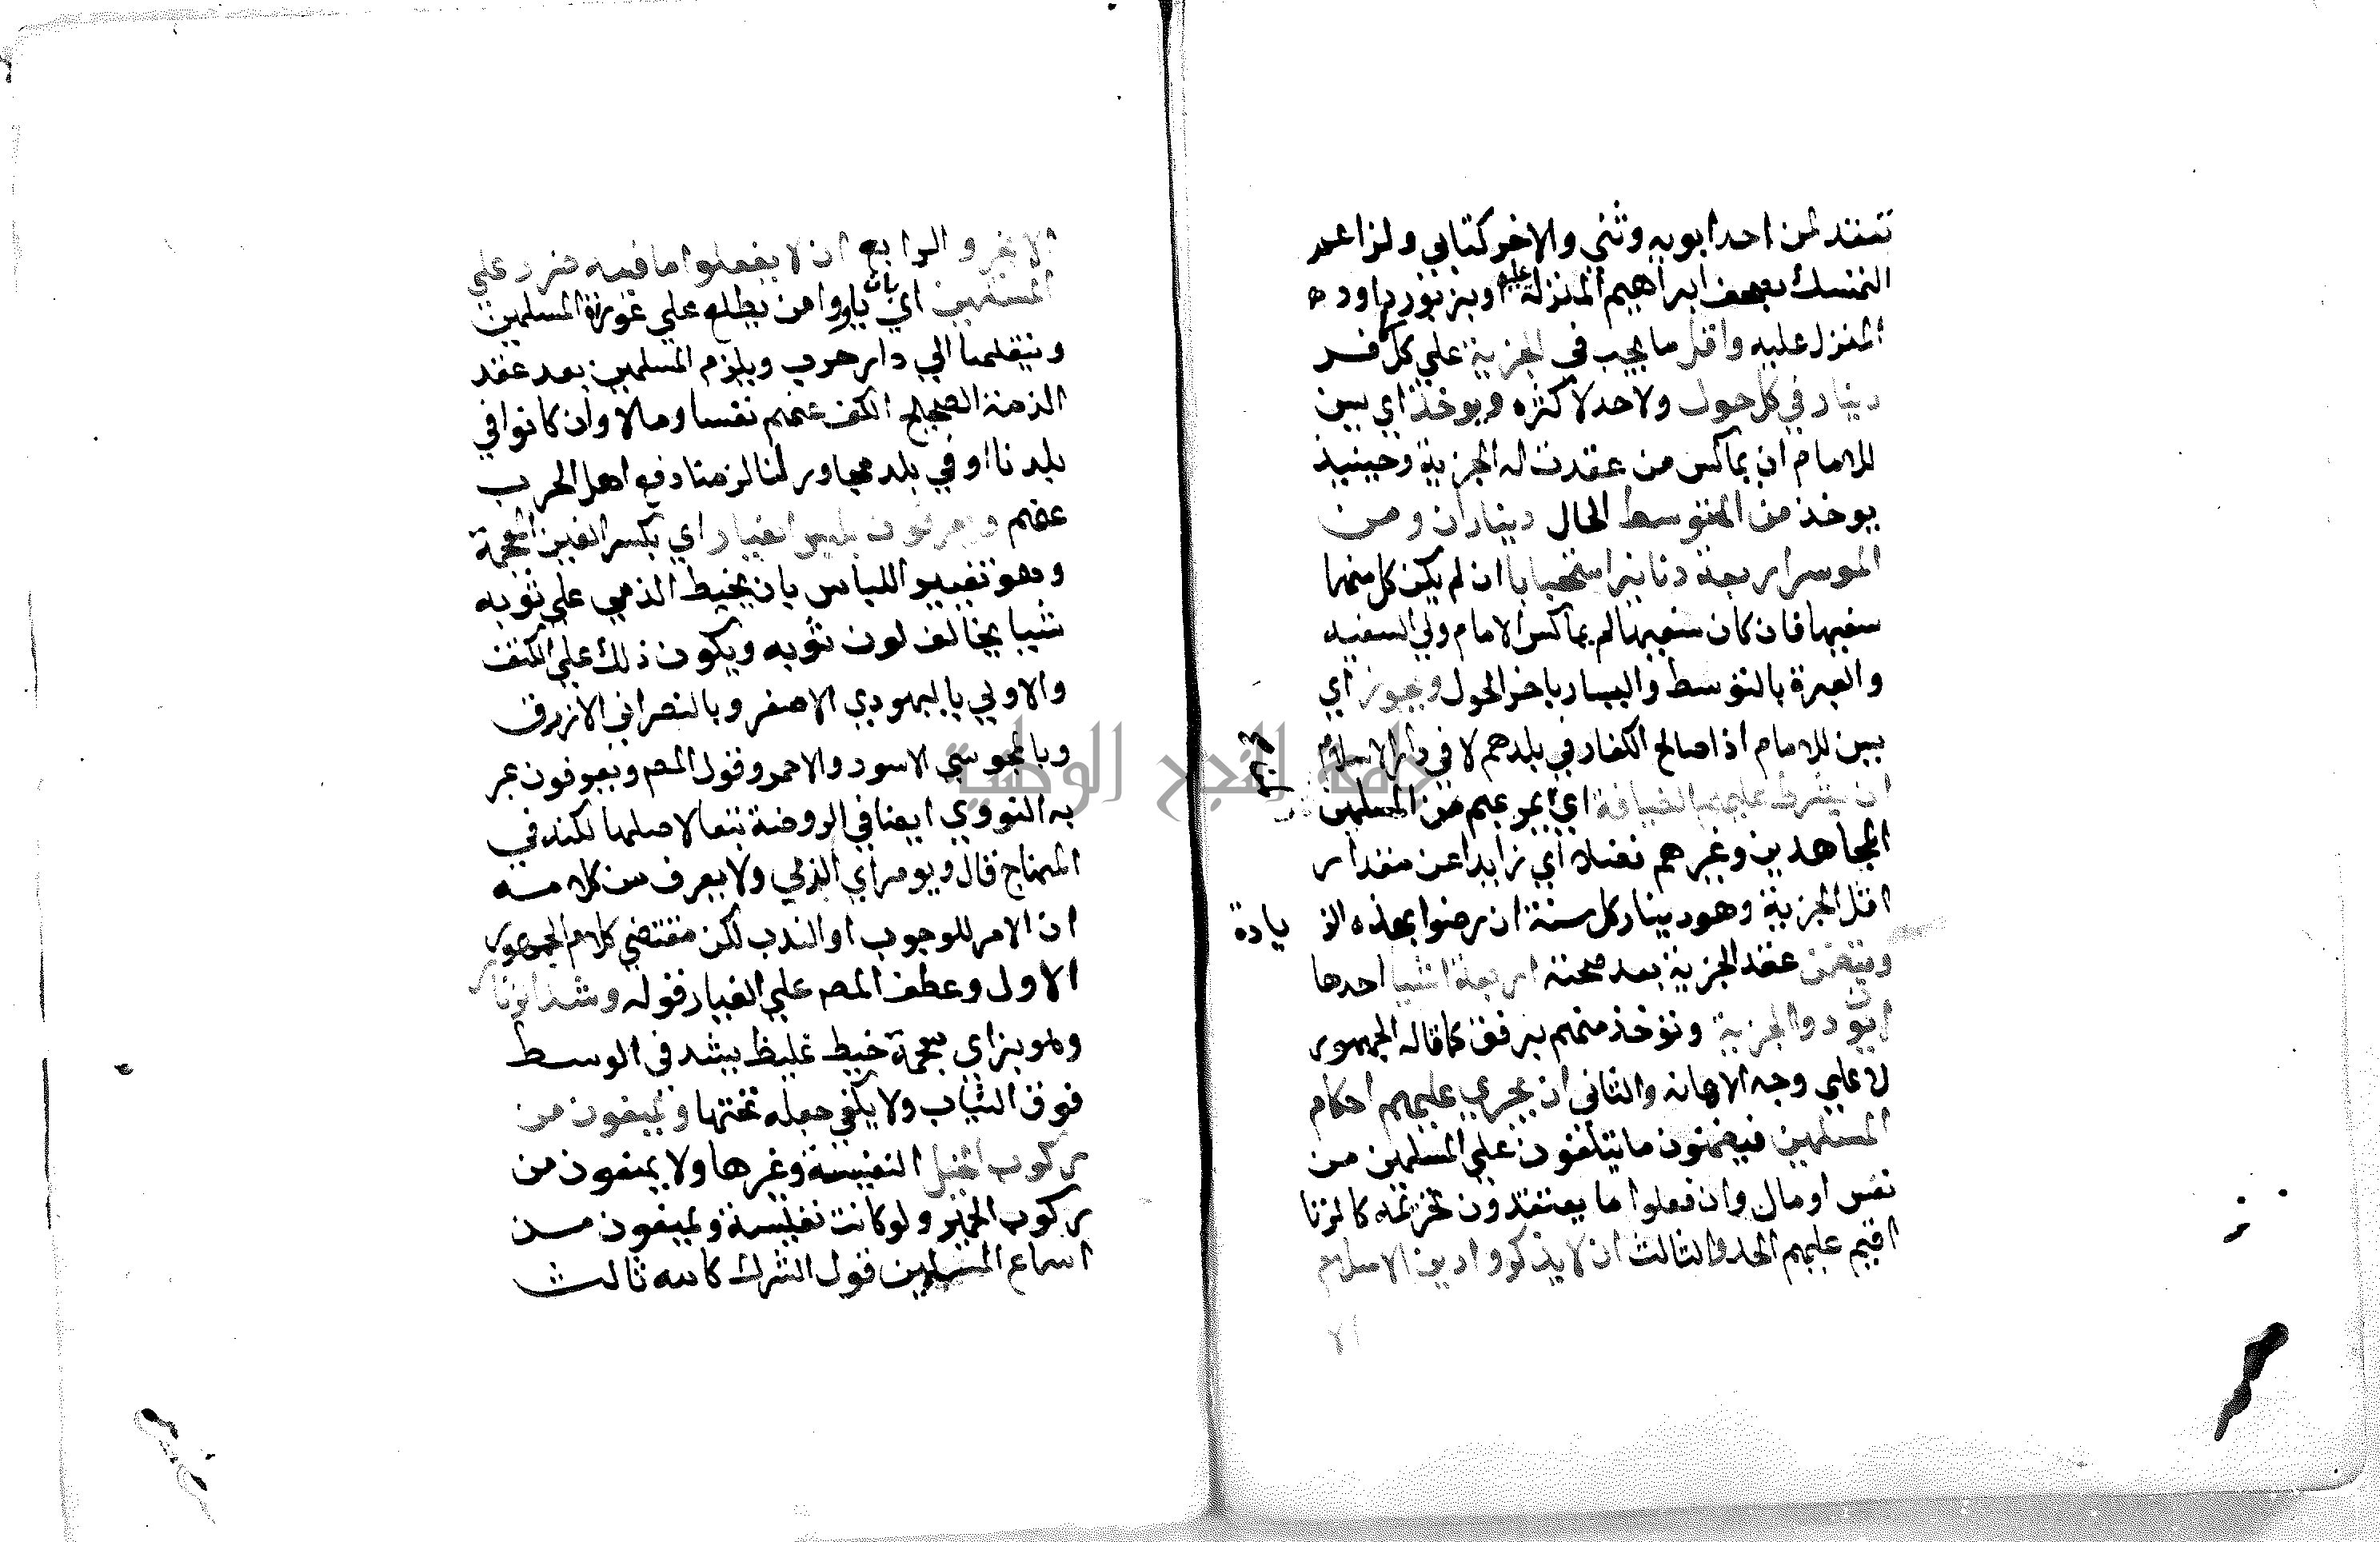 تنعقد لمن احد ابويه وثني والاخر كتابي ولزاعم
التمسك بصحف ابراهيم المنزلة عليه او بزبور داود
المنزل عليه واقل ما يجب في الجزية علي كل كافر
دينار في كل حول ولا حد لاكثره ويوخذ اي يسن
للامام ان يماكس من عقدت له الجزية وحينيذ
يوخذ من المتوسط الحال ديناران ومن
الموسر اربعة دنانير استحبابا ان لم يكن كل منهما
سفيها فان كان سفيها لم يماكس الامام ولي السفيه
والعبرة بالتوسط واليسار باخر الحول ويجوز اي
يسن للامام اذا صالح الكفار في بلدهم لا في دار الاسلام
ان يشترط عليهم الضيافة اي يمر بهم من المسلمين
المجاهدين وغيرهم فضلا اي زايدا عن مقدار
اقل الجزية وهو دينار كل سنة ان رضوا بهذه الز يادة
ويتضمن عقد الجزية بعد صحته اربعة اشيا احدها
ان يودوا الجزية وتؤخذ منهم برفق كما قاله الجمهور
لا علي وجه الاهانه والثاني ان يجري عليهم احكام
المسلمين فيضمنون ما يتلفون علي المسلمين من
نفس او مال وان فعلوا ما يعتقدون تحريمه كالزنا
اقيم عليهم الحد والثالث ان لا يذكروا دين الاسلام
الا
الا بخير والرابع ان لا يفعلوا ما فيه ضرر علي
المسلمين اي بان ياووا من يطلع علي عورة المسلمين
وينقلها الي دار حرب ويلزم المسلمين بعد عقد
الذمة الصحيح الكف عنهم نفسا ومالا وان كانوا في
بلدنا او في بلد مجاور لنا لزمنا دفع اهل الحرب
عنهم ويعرفون بلبس الغيار اي بكسر الغين المعجمة
وهو تغيير اللباس بان يخيط الذمي علي ثوبه
شيا يخالف لون ثوبه ويكون ذلك علي الكتف
والاولي باليهودي الاصفر وبالنصراني الازرق
وبالمجوسي الاسود والاحمر وقول المصـ ويعرفون عبر
به النووي ايضا في الروضة تبعا لاصلها لكنه في
المنهاج قال ويومر اي الذمي ولا يعرف من كلامه
ان الامر للوجوب او الندب لكن مقتضي كلام الجمهور
الاول وعطف المصـ علي الغيار قوله وشد الزنار
وهو بزاي معجمة خيط غليظ يشد في الوسط
فوق الثياب ولا يكفي جعله تحتها ويمنعون من
ركوب الخيل النفيسة وغيرها ولا يمنعون من
ركوب الحمير ولو كانت نفيسة ويمنعون من
اسماع المسلمين قول الشرك كالله ثالث